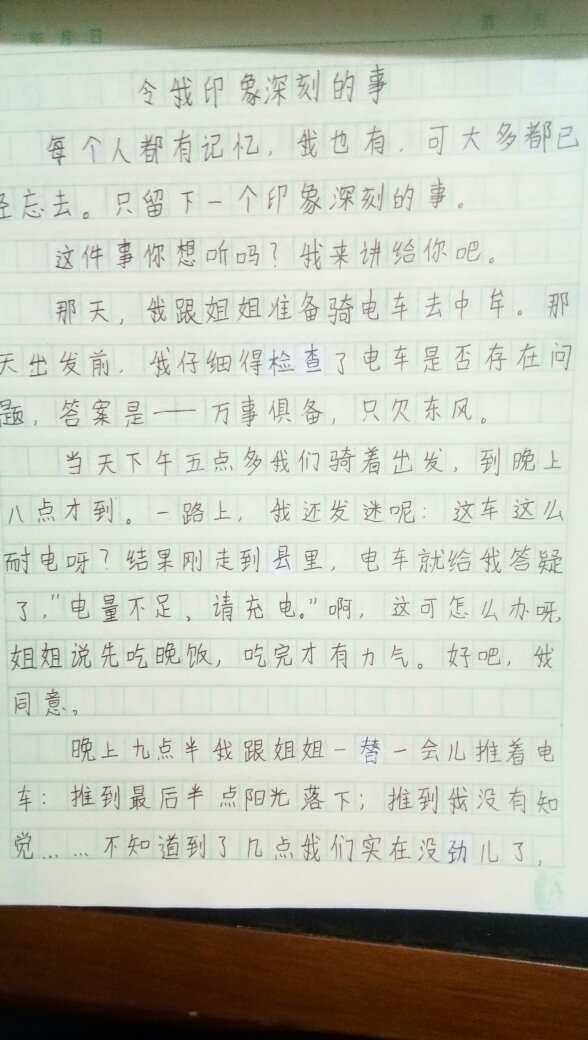 令我印象深刻的事
每个人都有记忆，我也有，可大多都已
经忘去。只留下一个印象深刻的事。
这件事你想听吗？我来讲给你吧。
那天，我跟姐姐准备骑电车去中牟。那
天出发前，我仔细得检查了电车是否存在问
题，答案是——万事俱备，只欠东风。
当天下午五点多我们骑着出发，到晚上
八点才到。一路上，我还发迷呢：这车这么
耐电呀？结果刚走到县里，电车就给我答疑
了，“电量不足、请充电。”啊，这可怎么办呀，
姐姐说先吃晚饭，吃完才有力气。好吧，我
同意。
晚上九点半我跟姐姐一替一会儿推着电
车：推到最后半点阳光落下；推到我没有知
觉……不知道到了几点我们实在没劲儿了，